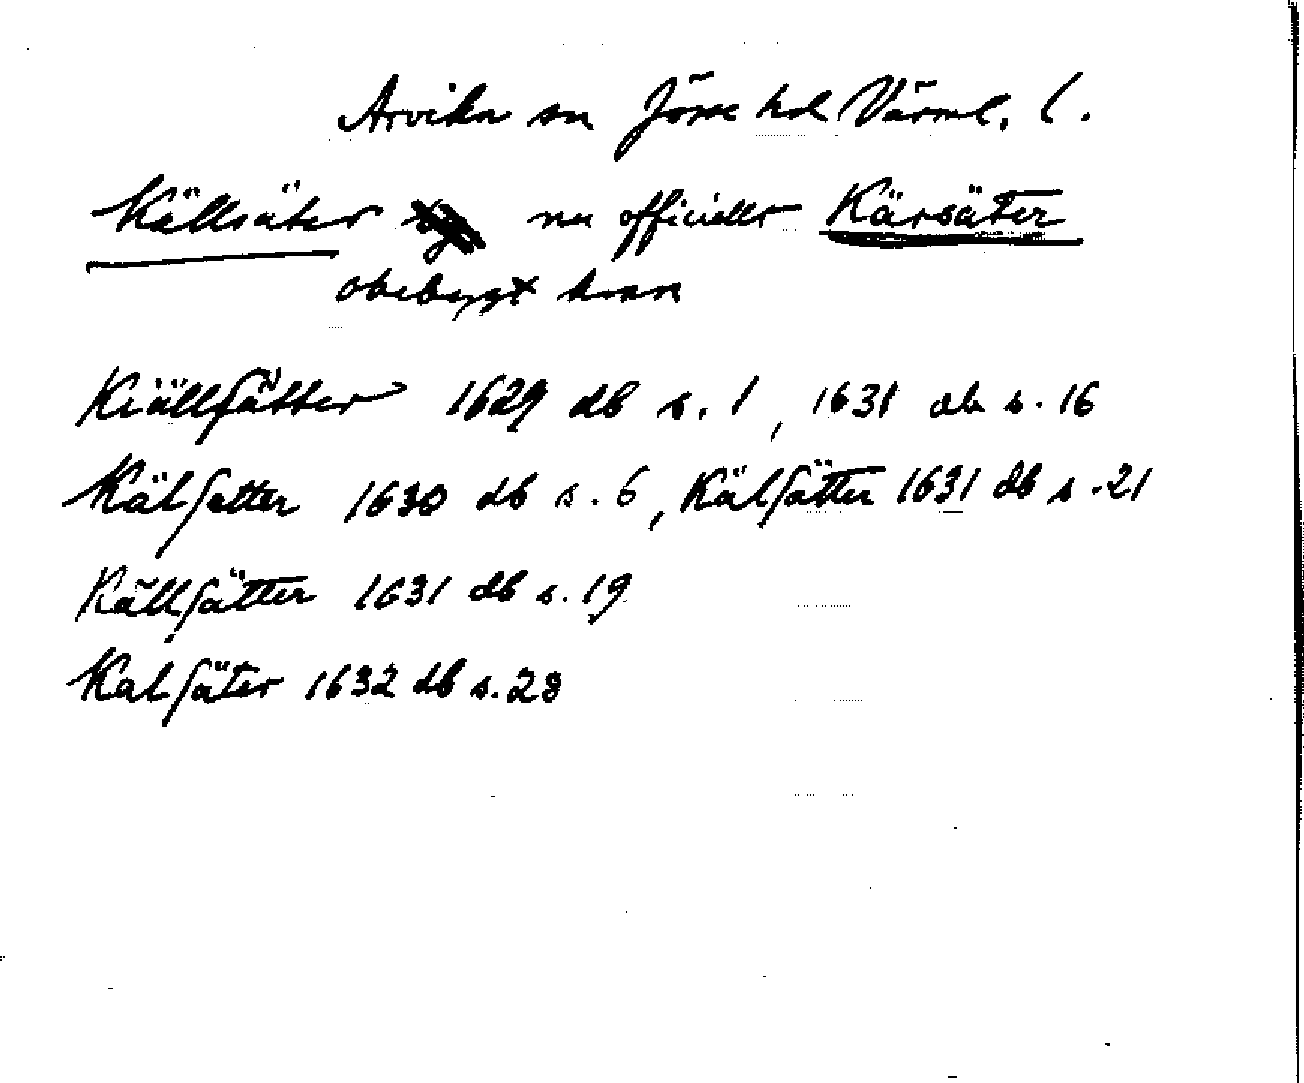 Arvika sn Jösse hd Värml. l.
Källsäter nu officiellt Kärsäter
obebyggt hman
Kiällsätter 1629 db s. 1, 1631 db s. 16
Kälsetter 1630 db s. 6, Kälsätter 1631 db s. 21
Källsätter 1631 db s. 19
Kalsäter 1632 db s. 28